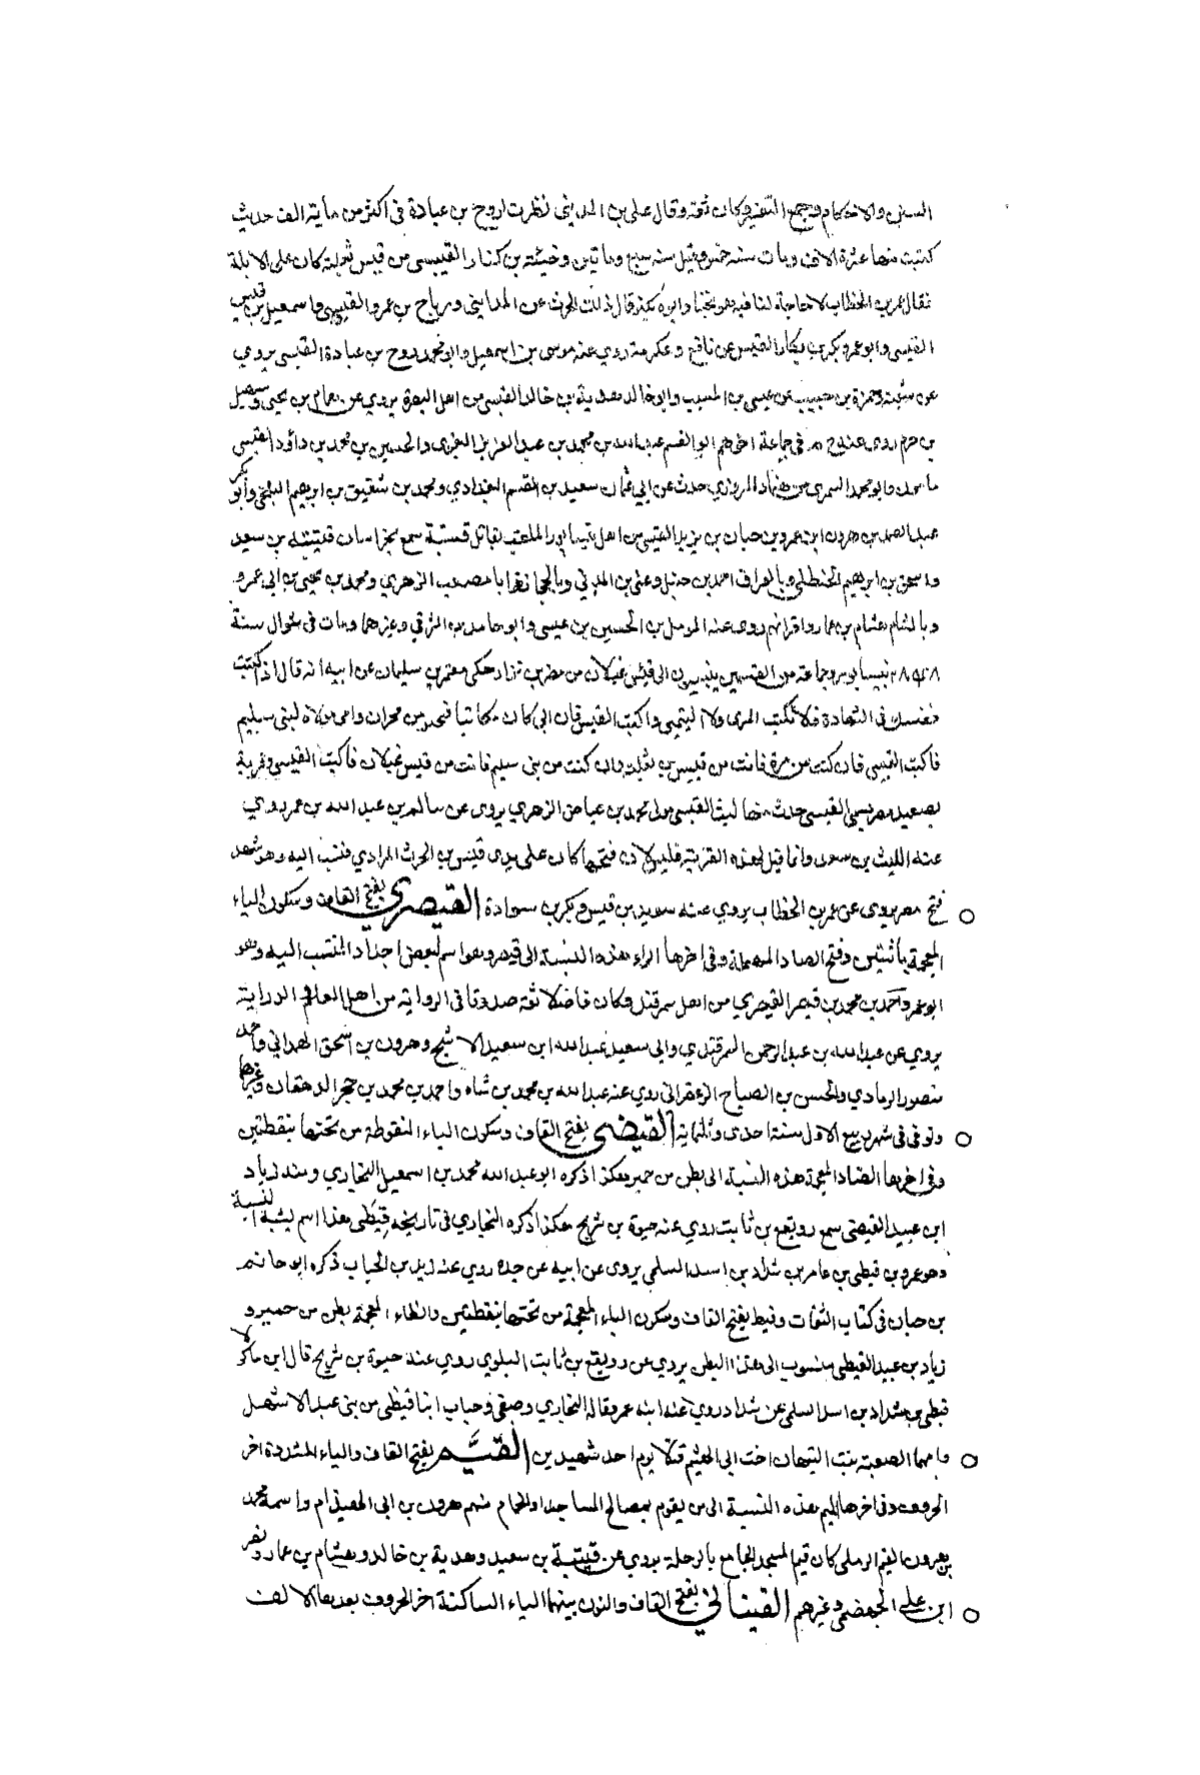 السنن والاحكام وجمع التفسير وكان ثقة وقال علي بن المديني نظرت لروح بن عبادة في اكثر من ماية الف حديث
كتبت منها عشرة الاف ومات سنة خمس وقيل سنة سبع وماتين وخيثمة بن كنار القيسي من قيس ثعلبة كان على الابلة
فقال عمر بن الخطاب لا حاجة لنا فيه هو يخبأ وابوه يكنز قال ذلك الحرث عن المدايني ورباح بن عمرو القيسي واسمعيل بن قيس
القيسي وابو عمرو بكر بن بكار القيسي عن نافع وعكرمة روي عنه موسى بن اسمعيل وابو محمد روح بن عبادة القيسي يروي
عن شعبة وحمزة بن حبيب عن عيسى بن المسيب وابو خالد هدبة بن خالد القيسي من اهل البصرة يروي عن همام بن يحيى وسهيل
بن حزم روى عنه في جماعة اخرهم ابو القسم عبد الله بن محمد بن عبد العزيز البغوي والحسين بن محمد بن داؤد القيسي
وابو محمد السمري المروزي حدث عن ابي عثمان سعيد بن القسم البغدادي ومحمد بن شقيق بن ابرهيم البلخي وأبو بكر
عبد الصمد بن هرون ابن عمرو بن حبان بن يزيد القيسي من اهل نيسابور الملقب بقاتل قتيبة سمع بخراسان قتيبة بن سعيد
واسحق بن ابرهيم الحنظلي وبالعراق احمد بن حنبل وعلي بن المديني وبالحجاز ابا مصعب الزهري ومحمد بن يحيى بن ابي عمرو
وبالشام هشام بن عمار واقرانهم روى عنه المومل بن الحسين بن عيسى وابو حامد بن الشرقي وغيرهما ومات في شوال سنة
بنيسابور وجماعة من القيسيين ينسبون الى قيس غيلان من مضر بن نزار حكى معتمر بن سليمان عن ابيه انه قال اذ كتبت
نفسك في الشهادة فلا تكتب المرى ولا التيمي واكتب القيسي فان ابي كان مكاتبا لبحر بن حمران وامي مولاة لبنى سليم
فاكتب القيسي فان كنت من مرة فانت من قيس بن ثعلبة وان كنت من بنى سليم فانت من قيس غيلان فاكتب القيسي وقرية
بصعيد مصر يسمى القيسى حدث منها ليث القيسى مولى محمد بن عياض الزهري يروى عن سالم بن عبد الله بن عمر روي
عنه الليث بن سعد وانما قيل لهذه القرية قيس لان فتحها كان على يدى قيس بن الحرث المرادي فنسب اليه وهو شهد
فتح مصر يروى عن عمر بن الخطاب يروي عنه سويد بن قيس وبكر بن سوادة القيصري بفتح القاف وسكون الياء
المعجمة باثنتين وفتح الصاد المهملة وفي اخرها الراء هذه النسبة الى قيصر وهو اسم لبعض اجداد المنتسب اليه وهو
ابو عمرو احمد بن محمد بن قيصر القيصري من اهل سمرقند وكان فاضلا ثقة صدوقا في الرواية من اهل العلم والدراية
يروي عن عبد الله بن عبد الرحمن السمرقندي وابي سعيد عبد الله ابن سعيد الاشج وهرون بن اسحق الهمداني واحمد
منصور الرمادي والحسن بن الصباح الزعفراني روي عنه عبد الله بن محمد بن شاه واحمد بن محمد بن حجر الدهقان وغيرهما
وتوفى في شهر ربيع الاول سنة احدى وثلثماية القيضي بفتح القاف وسكون الياء المنقوطة من تحتها بنقطتين
وفي اخرها الضاد المعجمة هذه النسبة الى بطن من حمير هكذا ذكره ابو عبد الله محمد بن اسمعيل البخاري ومنه زياد
ابن عبيد القيضي سمع رويقع بن ثابت روي عنه حيوة بن شريح هكذا ذكره البخاري في تاريخه قيظى هذا اسم يشبه النسبة
وهو عمرو بن قيظى بن عامر بن شداد بن اسد السلمي يروى عن ابيه عن جده روي عنه زيد بن الحباب ذكره ابو حاتم
بن حبان في كتاب الثقات وقيظ بفتح القاف وسكون الياء المعجمة من تحتها بنقطتين والظاء المعجمة بطن من حمير و
زياد بن عبيد القيظى منسوب الى هذا البطن يروي عن رويقع بن ثابت البلوي روي عنه حيوة بن شريح قال ابن ماكولا
قيظى بن شداد بن اسد السلمي عن شداد روي عنه ابنه عمرو قاله البخاري وصيفي وحباب ابنا قيظى من بنى عبد الاشهل
وامهما الصعبة بنت التيهان اخت ابي الهيثم قتلا يوم احد شهيدين القيّم بفتح القاف والياء المشددة اخر
الحروف وفي اخرها الميم هذه النسبة الى من يقوم بمصالح المساجد او الحمام منهم هرون بن ابي الهيذام واسمه محمد
بن هرون القيم الرملي كان قيم المسجد الجامع بالرملة يروي عن قتيبة بن سعيد وهدبة بن خالد وهشام بن عمار ونصر
ابن علي الجهضمي وغيرهم القيناني بفتح القاف والنون بينهما الياء الساكنة اخر الحروف بعدها الالف